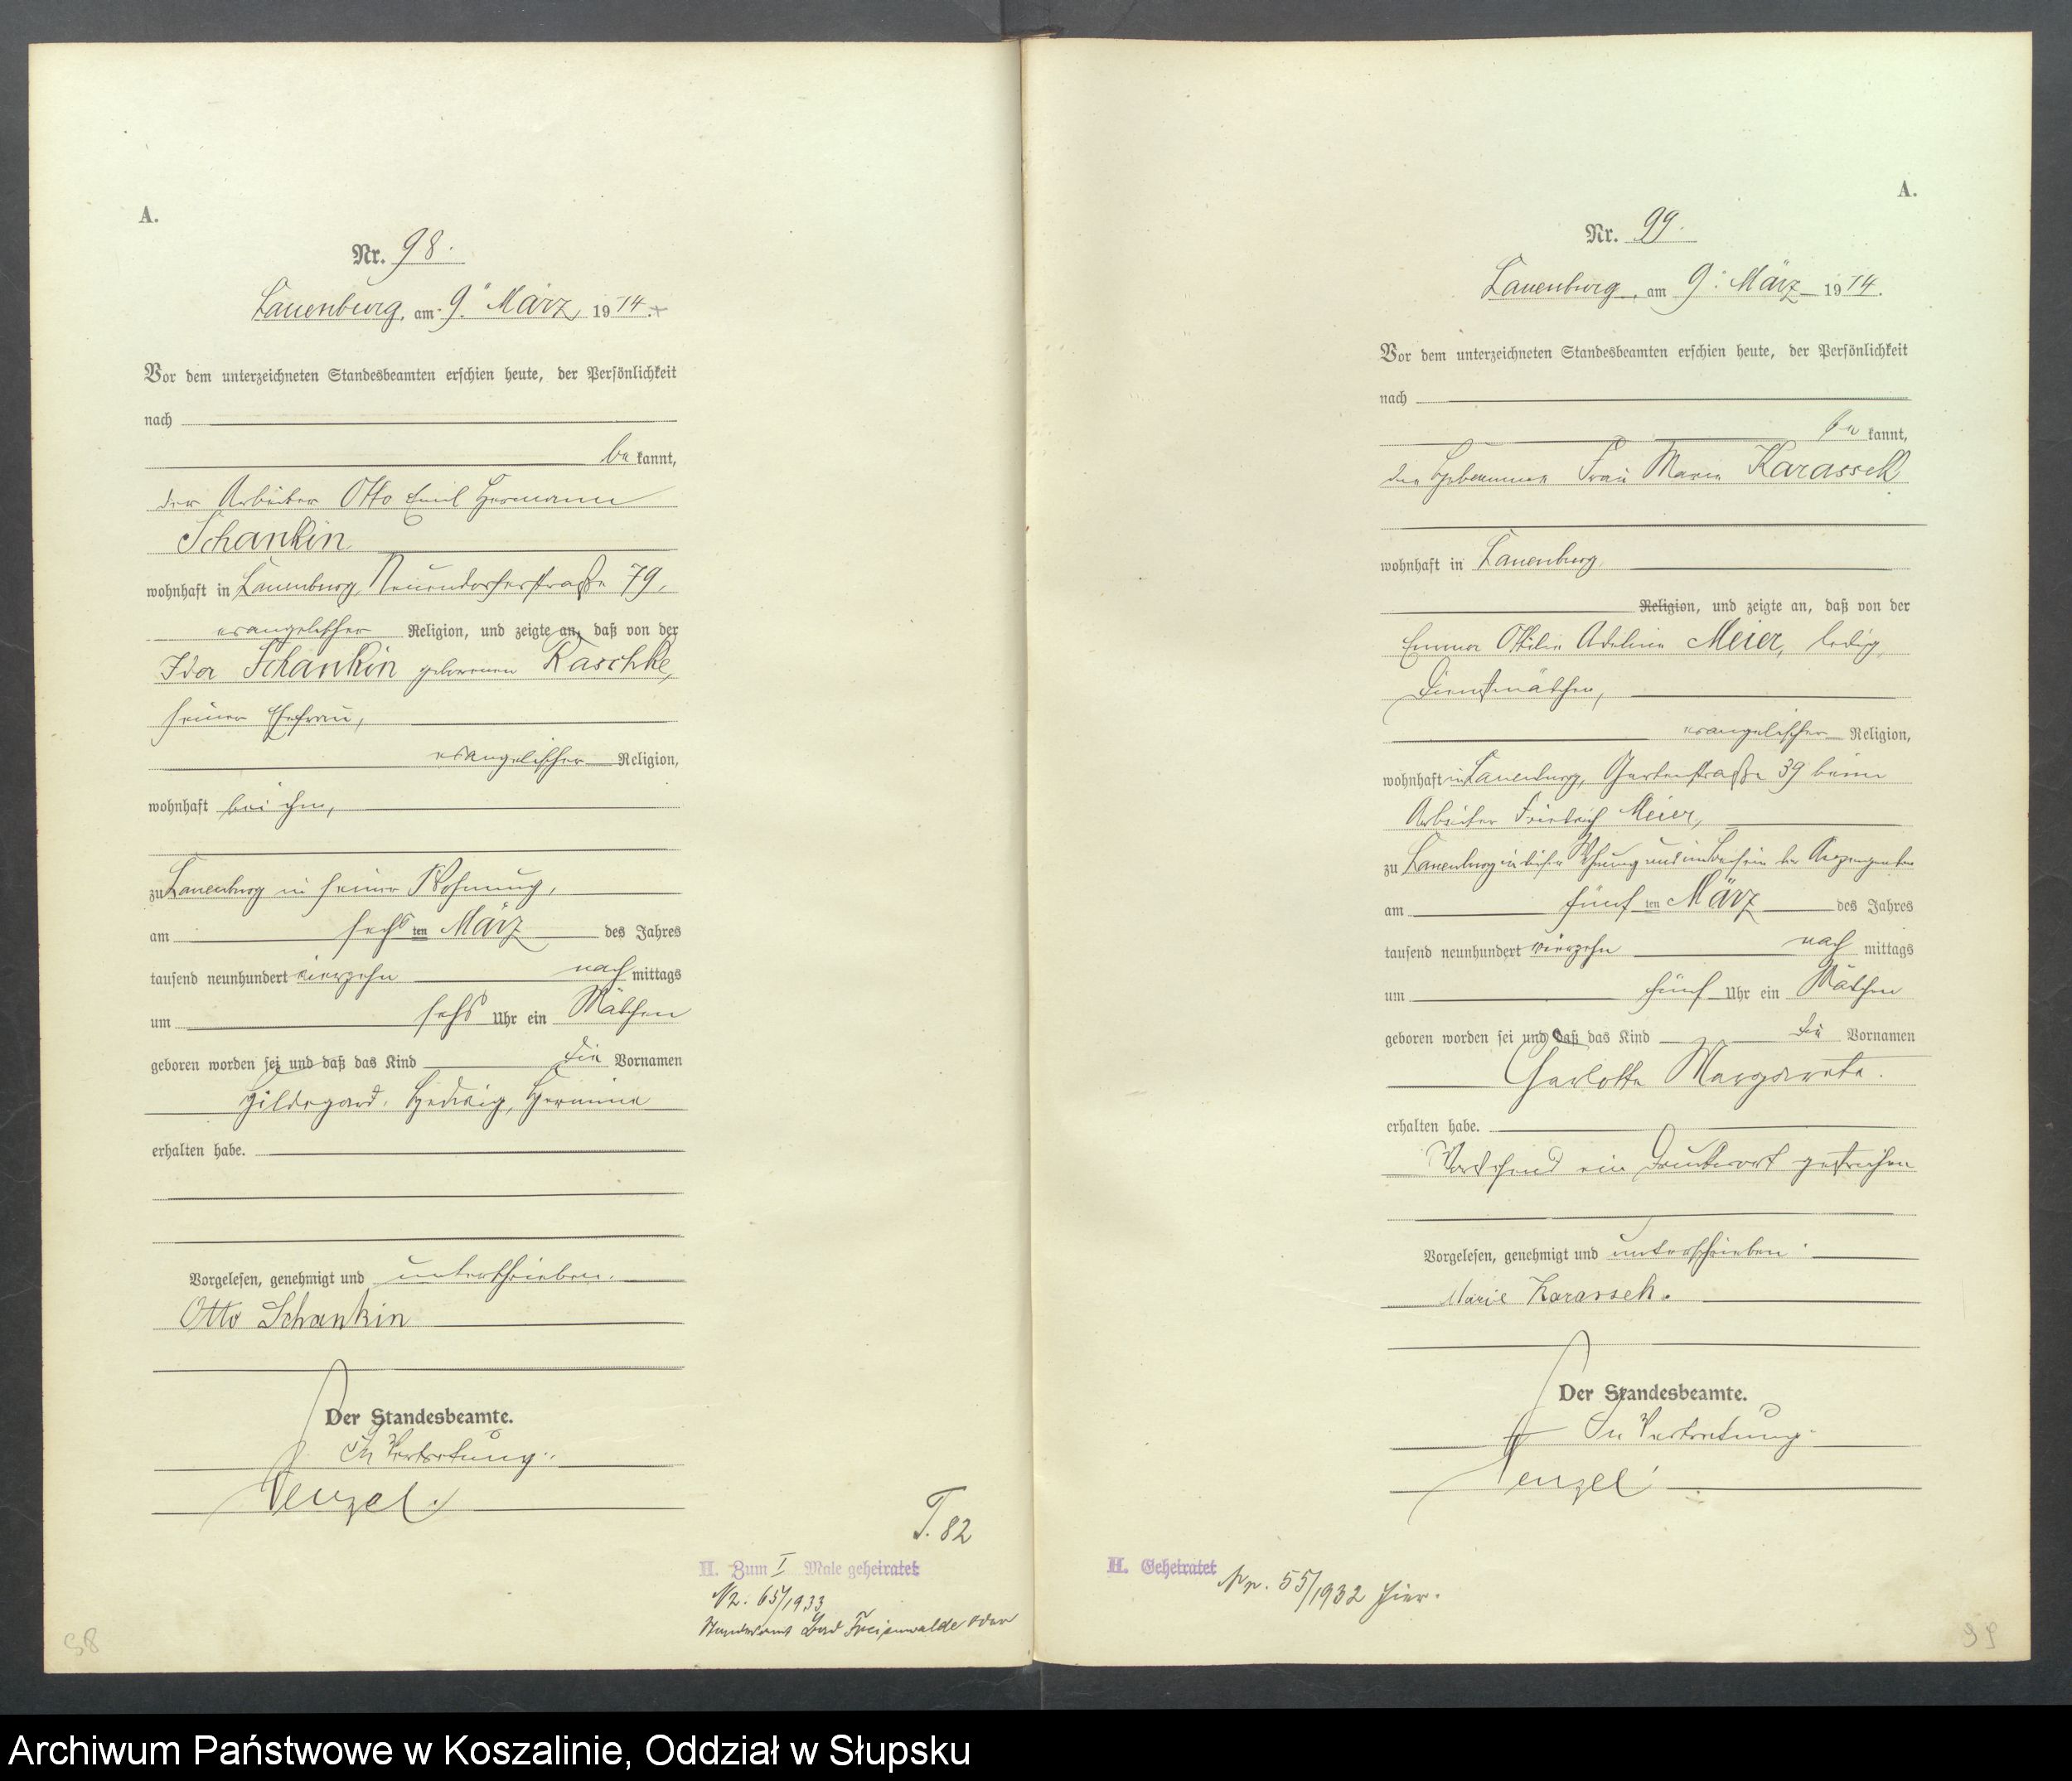 A.
Nr. 98.
Lauenburg, am 9. März 1914.
Vor dem unterzeichneten Standesbeamten erschien heute, der Persönlichkeit
nach
bekannt,
der Arbeiter Otto Emil Hermann
Schankin
wohnhaft in Lauenburg, Neuendorferstraße 79,
evangelischer Religion, und zeigte an, daß von der
Ida Schankin geborenen Raschke,
seiner Ehefrau,
evangelischer Religion,
wohnhaft bei ihm,
zu Lauenburg in seiner Wohnung,
am sechsten März des Jahres
tausend neunhundert vierzehn nachmittags
um sechs Uhr ein Mädchen
geboren worden sei und daß das Kind die Vornamen
Hildegard, Hedwig, Hermine
erhalten habe.
Vorgelesen, genehmigt und unterschrieben.
Otto Schankin
Der Standesbeamte.
In Vertretung.
Wenzel.
T. 82
H. Zum I Male geheiratet
Nr. 65/1933
Standesamt Bad Freienwalde Oder
98
A.
Nr. 99.
Lauenburg, am 9. März 1914.
Vor dem unterzeichneten Standesbeamten erschien heute, der Persönlichkeit
nach
bekannt,
die Hebamme Frau Marie Karasseck
wohnhaft in Lauenburg
Religion, und zeigte an, daß von der
Emma Ottilie Adeline Meier, ledig,
Dienstmädchen,
evangelischer Religion,
wohnhaft in Lauenburg, Gartenstraße 39 beim
Arbeiter Friedrich Meier,
zu Lauenburg in dieser Wohnung und im Beisein der Anzeigenden
am fünften März des Jahres
tausend neunhundert vierzehn nachmittags
um fünf Uhr ein Mädchen
geboren worden sei und daß das Kind die Vornamen
Charlotte Margarete.
erhalten habe.
Vorstehend ein Druckwort gestrichen
Vorgelesen, genehmigt und unterschrieben.
Marie Karasseck.
Der Standesbeamte.
In Vertretung.
Wenzel
H. Geheiratet Nr. 55/1932 hier.
99
Archiwum Państwowe w Koszalinie, Oddział w Słupsku